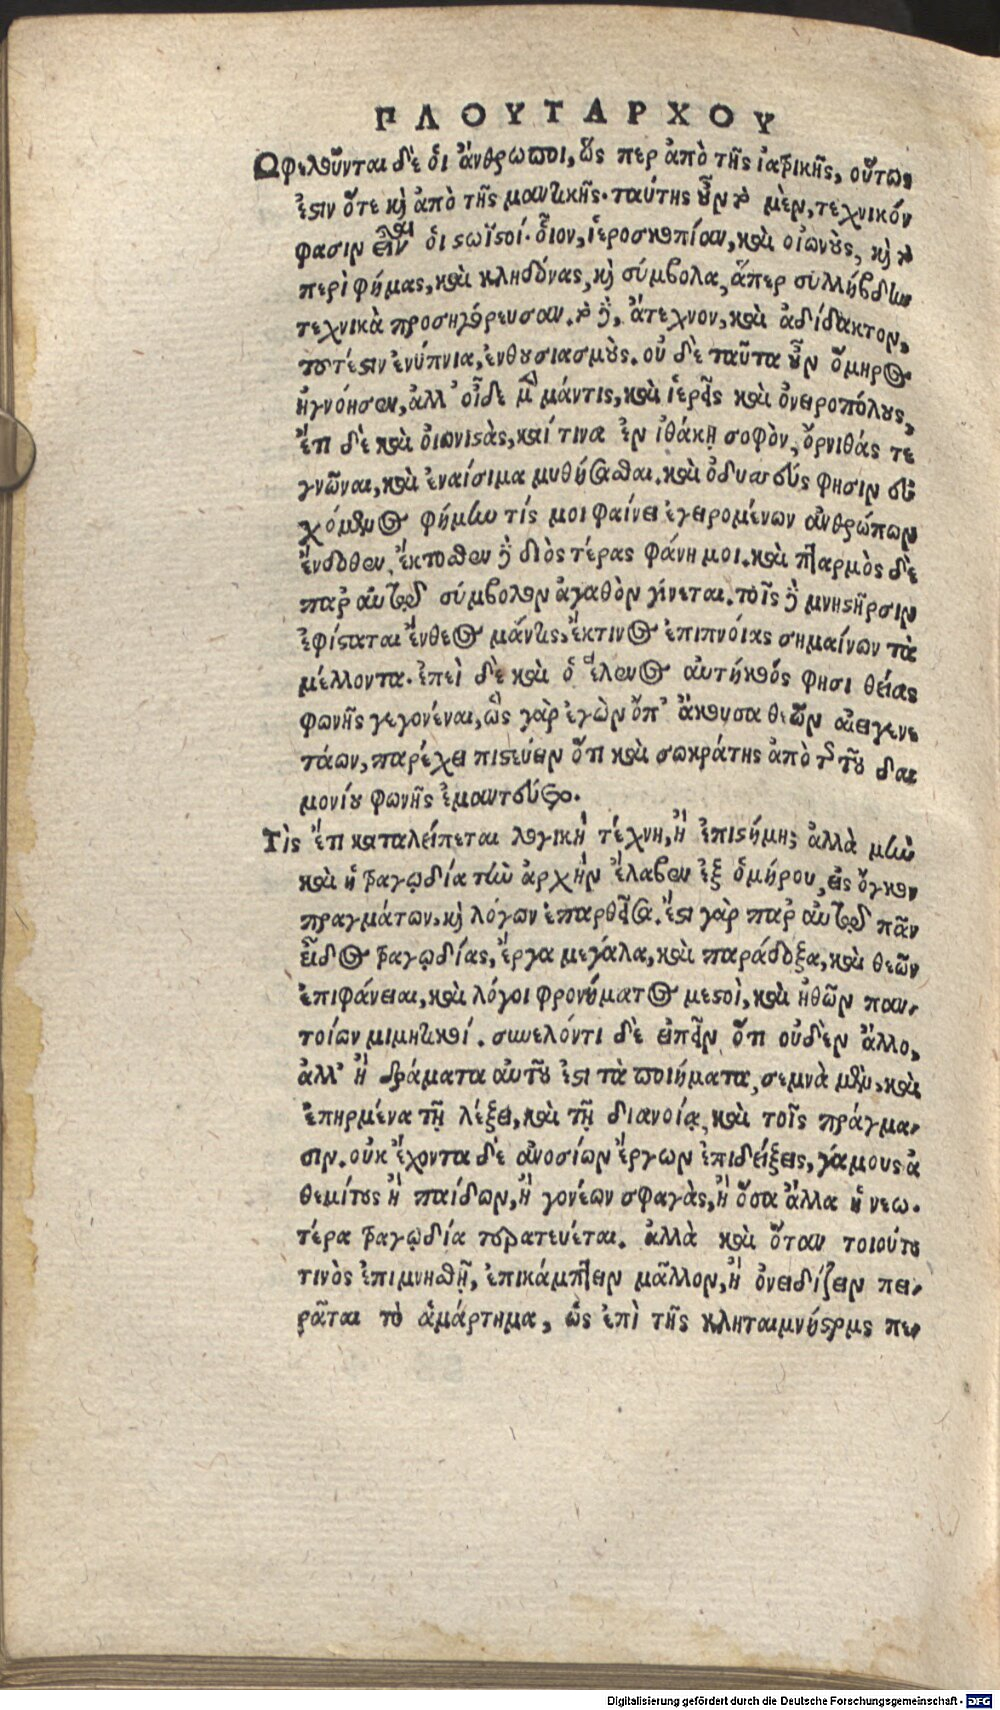 ΠΛΟΥΤΑΡΧΟΥ
Ωφελοῦνται δὲ ὁι ἄνθρωποι, ὥς περ ἀπὸ τῆς ἰατρικῆς, οὕτως
ἐστιν ὅτε καὶ ἀπὸ τῆς μαντικῆς. ταύτης οὖν τὸ μὲν, τεχνικόν
φασιν εἶναι ὁι στωϊκοί. οἷον, ἱεροσκοπίαν, καὶ οἰωνοὺς, καὶ τὸ
περὶ φήμας, καὶ κληδόνας, καὶ σύμβολα, ἅπερ συλλήβδην
τεχνικὰ προσηγόρευσαν. τὸ δὲ, ἄτεχνον, καὶ ἀδίδακτον,
τουτέστιν ἐνύπνια, ἐνθουσιασμοὺς. οὐ δὲ ταῦτα οὖν ὅμηρος
ἠγνόησεν, ἀλλ' οἶδε μὲν μάντις, καὶ ἱερεῖς καὶ ὀνειροπόλους,
ἔτι δὲ καὶ οἰωνιστὰς, καί τινα ἐν ἰθάκῃ σοφὸν, ὄρνιθάς τε
γνῶναι, καὶ ἐναίσιμα μυθήσασθαι. καὶ ὀδυσσεύς φησιν εὐ
χόμενος φήμην τίς μοι φαίνει ἐγειρομένων ἀνθρώπων
ἔνδοθεν, ἔκτοσθεν δὲ διὸς τέρας φάνη μοι. καὶ πταρμὸς δὲ
παρ' αὐτῷ σύμβολον ἀγαθὸν γίνεται. τοῖς δὲ μνηστῆρσιν
ἐφίσταται ἔνθεος μάντις, ἔκ τινος ἐπιπνοίας σημαίνων τὰ
μέλλοντα. ἐπεὶ δὲ καὶ ὁ ἕλενος αὐτήκοός φησι θείας
φωνῆς γεγονέναι, ὣς γὰρ ἐγὼν ὄπ' ἄκουσα θεῶν αἰειγενε
τάων, παρέχει πιστεύειν ὅτι καὶ σωκράτης ἀπὸ τῆς τοῦ δαι
μονίου φωνῆς ἐμαντεύετο.
Τὶς ἔτι καταλείπεται λογικὴ τέχνη, ἢ ἐπιστήμη; ἀλλὰ μὴν
καὶ ἡ τραγῳδία τὴν ἀρχὴν ἔλαβεν ἐξ ὁμήρου, εἰς ὄγκον
πραγμάτων, καὶ λόγων ἐπαρθεῖσα. ἔστι γὰρ παρ' αὐτῷ πᾶν
εἶδος τραγῳδίας, ἔργα μεγάλα, καὶ παράδοξα, καὶ θεῶν
ἐπιφάνειαι, καὶ λόγοι φρονήματος μεστοὶ, καὶ ἠθῶν παν-
τοίων μιμητικοί. συνελόντι δὲ εἰπεῖν ὅτι οὐδὲν ἄλλο,
ἀλλ' ἢ δράματα αὐτοῦ ἐστι τὰ ποιήματα, σεμνὰ μὲν, καὶ
ἐπηρμένα τῇ λέξει, καὶ τῇ διανοίᾳ, καὶ τοῖς πράγμα-
σιν. οὐκ ἔχοντα δὲ ἀνοσίων ἔργων ἐπιδείξεις, γάμους ἀ
θεμίτους ἢ παίδων, ἢ γονέων σφαγὰς, ἢ ὅσα ἄλλα ἡ νεω-
τέρα τραγῳδία τερατεύεται. ἀλλὰ καὶ ὅταν τοιούτου
τινὸς ἐπιμνησθῇ, ἐπικάμπτειν μᾶλλον, ἢ ὀνειδίζειν πει-
ρᾶται τὸ ἁμάρτημα, ὡς ἐπὶ τῆς κληταιμνήστρης πε-
Digitalisierung gefördert durch die Deutsche Forschungsgemeinschaft - DFG